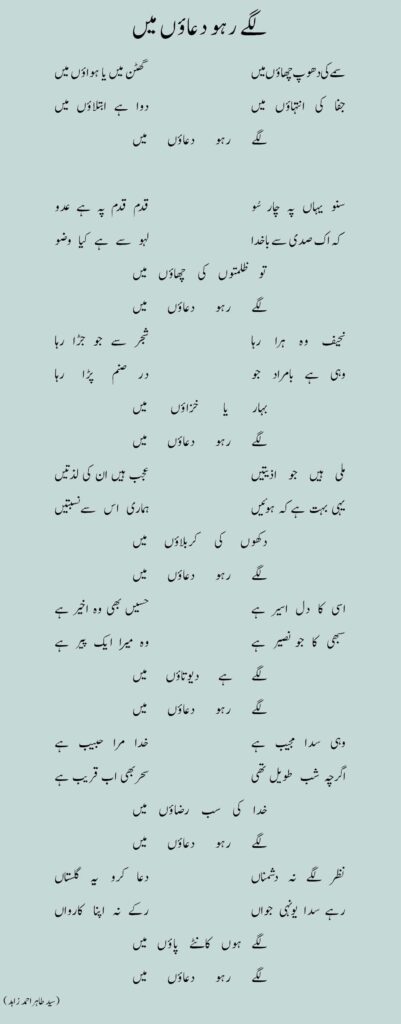 لگے رہو دعاؤں میں
سمے کی دھوپ چھاؤں میں گھٹن میں یا ہواؤں میں
جفا کی انتہاؤں میں دوا ہے ابتلاؤں میں
لگے رہو دعاؤں میں
سنو یہاں پہ چار سُو قدم قدم پہ ہے عدو
کہ اک صدی سے باخدا لہو سے ہے کیا وضو
تو ظلمتوں کی چھاؤں میں
لگے رہو دعاؤں میں
نحیف وہ ہرا رہا شجر سے جو جڑا رہا
وہی ہے بامراد جو در صنم پڑا رہا
بہار یا خزاؤں میں
لگے رہو دعاؤں میں
ملی ہیں جو اذیتیں عجب ہیں ان کی لذتیں
یہی بہت ہے کہ ہوئیں ہماری اس سے نسبتیں
دکھوں کی کربلاؤں میں
لگے رہو دعاؤں میں
اسی کا دل اسیر ہے حسیں بھی وہ اخیر ہے
سبھی کا جو نصیر ہے وہ میرا ایک پیر ہے
لگے ہے دیوتاؤں میں
لگے رہو دعاؤں میں
وہی سدا مجیب ہے خدا مرا حبیب ہے
اگرچہ شب طویل تھی سحر بھی اب قریب ہے
خدا کی سب رضاؤں میں
لگے رہو دعاؤں میں
نظر لگے نہ دشمناں دعا کرو یہ گلستاں
رہے سدا یونہی جواں رکے نہ اپنا کارواں
لگے ہوں کانٹے پاؤں میں
لگے رہو دعاؤں میں
(سید طاہر احمد زاہد)